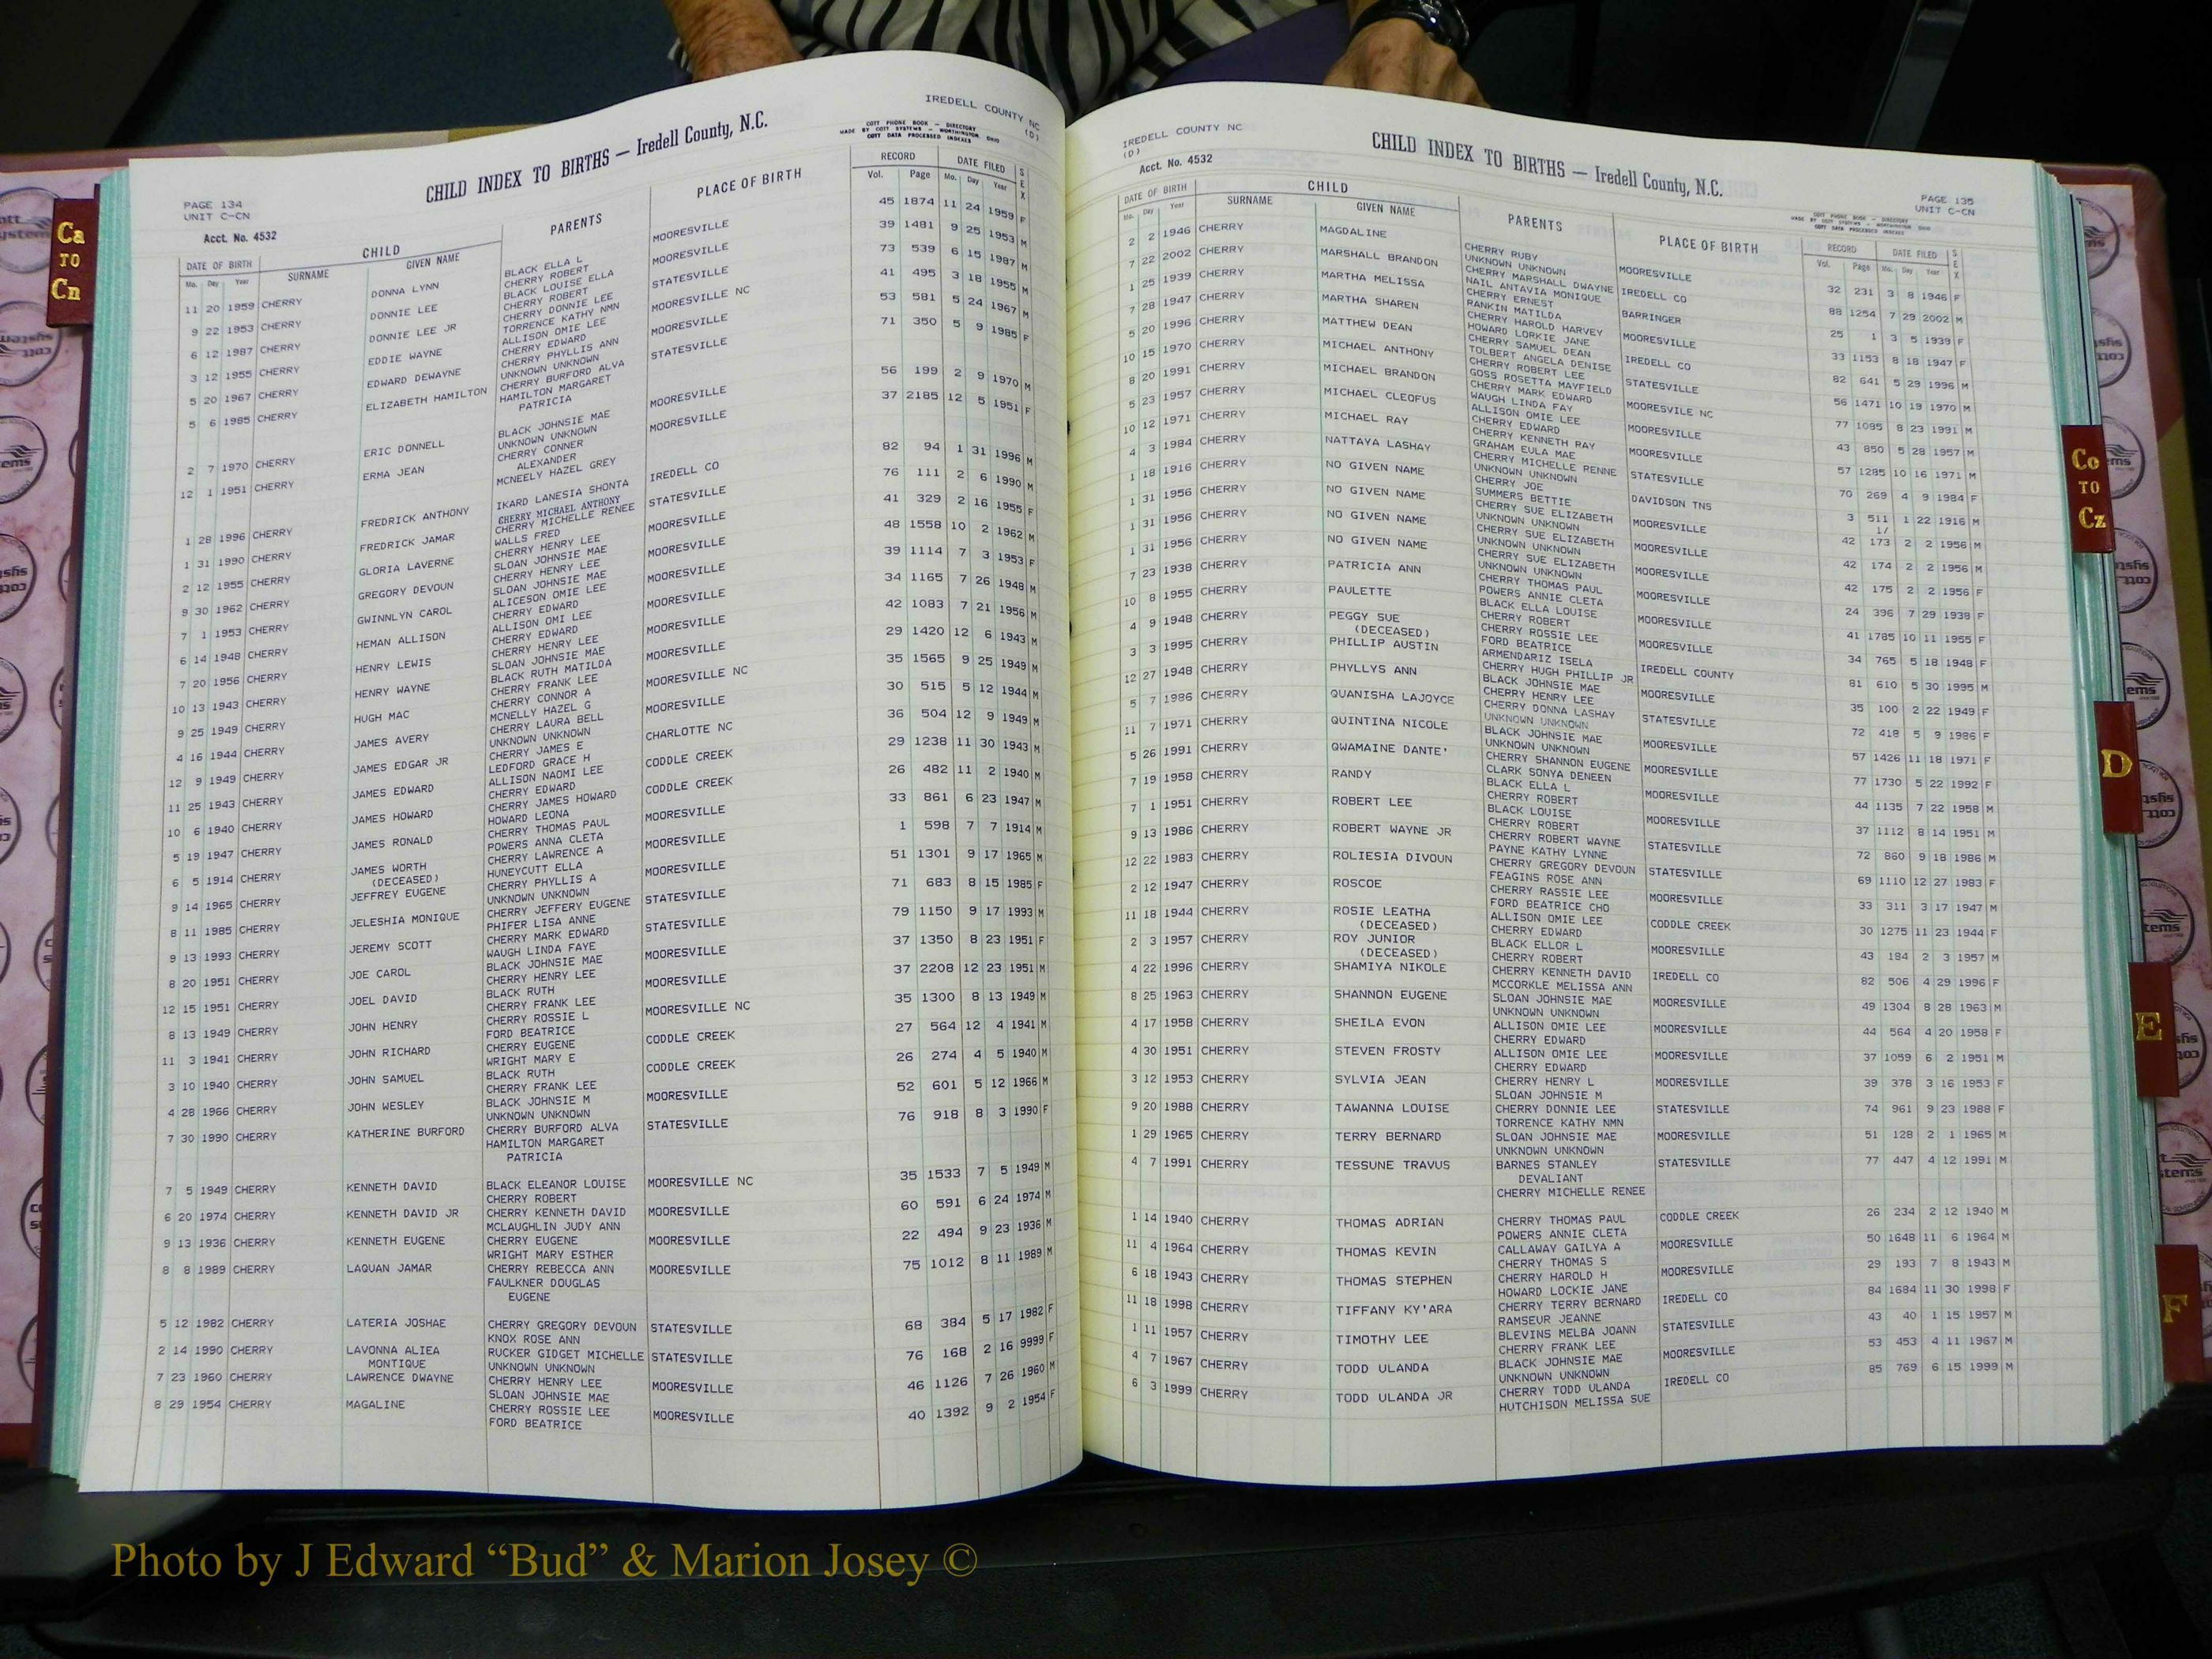 IREDELL COUNTY NC
(D)
COTT PHONE BOOK — DIRECTORY
MADE BY COTT SYSTEMS — WORTHINGTON, OHIO
COTT DATA PROCESSED INDEXES
CHILD INDEX TO BIRTHS — Iredell County, N.C.
PAGE 134
UNIT C-CN
Acct. No. 4532
DATE OF BIRTH CHILD PARENTS PLACE OF BIRTH RECORD DATE FILED SEX
Mo. Day Year SURNAME GIVEN NAME Vol. Page Mo. Day Year
11 20 1959 CHERRY DONNA LYNN BLACK ELLA L MOORESVILLE 45 1874 11 24 1959 F
CHERRY ROBERT
9 22 1953 CHERRY DONNIE LEE BLACK LOUISE ELLA MOORESVILLE 39 1481 9 25 1953 M
CHERRY ROBERT
6 12 1987 CHERRY DONNIE LEE JR CHERRY DONNIE LEE STATESVILLE 73 539 6 15 1987 M
TORRENCE KATHY NMN
3 12 1955 CHERRY EDDIE WAYNE ALLISON OMIE LEE MOORESVILLE NC 41 495 3 18 1955 M
CHERRY EDWARD
5 20 1967 CHERRY EDWARD DEWAYNE CHERRY PHYLLIS ANN MOORESVILLE 53 581 5 24 1967 M
UNKNOWN UNKNOWN
5 6 1985 CHERRY ELIZABETH HAMILTON CHERRY BURFORD ALVA STATESVILLE 71 350 5 9 1985 F
HAMILTON MARGARET
PATRICIA
2 7 1970 CHERRY ERIC DONNELL BLACK JOHNSIE MAE MOORESVILLE 56 199 2 9 1970 M
UNKNOWN UNKNOWN
12 1 1951 CHERRY ERMA JEAN CHERRY CONNER MOORESVILLE 37 2185 12 5 1951 F
ALEXANDER
MCNEELY HAZEL GREY
1 28 1996 CHERRY FREDRICK ANTHONY IKARD LANESIA SHONTA IREDELL CO 82 94 1 31 1996 M
CHERRY MICHAEL ANTHONY
1 31 1990 CHERRY FREDRICK JAMAR CHERRY MICHELLE RENEE STATESVILLE 76 111 2 6 1990 M
WALLS FRED
2 12 1955 CHERRY GLORIA LAVERNE CHERRY HENRY LEE MOORESVILLE 41 329 2 16 1955 F
SLOAN JOHNSIE MAE
9 30 1962 CHERRY GREGORY DEVOUN CHERRY HENRY LEE MOORESVILLE 48 1558 10 2 1962 M
SLOAN JOHNSIE MAE
7 1 1953 CHERRY GWINNLYN CAROL ALICESON OMIE LEE MOORESVILLE 39 1114 7 3 1953 F
CHERRY EDWARD
6 14 1948 CHERRY HEMAN ALLISON ALLISON OMI LEE MOORESVILLE 34 1165 7 26 1948 M
CHERRY EDWARD
7 20 1956 CHERRY HENRY LEWIS CHERRY HENRY LEE MOORESVILLE 42 1083 7 21 1956 M
SLOAN JOHNSIE MAE
10 13 1943 CHERRY HENRY WAYNE BLACK RUTH MATILDA MOORESVILLE 29 1420 12 6 1943 M
CHERRY FRANK LEE
9 25 1949 CHERRY HUGH MAC CHERRY CONNOR A MOORESVILLE NC 35 1565 9 25 1949 M
MCNELLY HAZEL G
4 16 1944 CHERRY JAMES AVERY CHERRY LAURA BELL MOORESVILLE 30 515 5 12 1944 M
UNKNOWN UNKNOWN
12 9 1949 CHERRY JAMES EDGAR JR CHERRY JAMES E CHARLOTTE NC 36 504 12 9 1949 M
LEDFORD GRACE H
11 25 1943 CHERRY JAMES EDWARD ALLISON NAOMI LEE CODDLE CREEK 29 1238 11 30 1943 M
CHERRY EDWARD
10 6 1940 CHERRY JAMES HOWARD CHERRY JAMES HOWARD CODDLE CREEK 26 482 11 2 1940 M
HOWARD LEONA
5 19 1947 CHERRY JAMES RONALD CHERRY THOMAS PAUL MOORESVILLE 33 861 6 23 1947 M
POWERS ANNA CLETA
6 5 1914 CHERRY JAMES WORTH CHERRY LAWRENCE A MOORESVILLE 1 598 7 7 1914 M
(DECEASED) HUNEYCUTT ELLA
9 14 1965 CHERRY JEFFREY EUGENE CHERRY PHYLLIS A MOORESVILLE 51 1301 9 17 1965 M
UNKNOWN UNKNOWN
8 11 1985 CHERRY JELESHIA MONIQUE CHERRY JEFFERY EUGENE STATESVILLE 71 683 8 15 1985 F
PHIFER LISA ANNE
9 13 1993 CHERRY JEREMY SCOTT CHERRY MARK EDWARD STATESVILLE 79 1150 9 17 1993 M
WAUGH LINDA FAYE
8 20 1951 CHERRY JOE CAROL BLACK JOHNSIE MAE MOORESVILLE 37 1350 8 23 1951 F
CHERRY HENRY LEE
12 15 1951 CHERRY JOEL DAVID BLACK RUTH MOORESVILLE 37 2208 12 23 1951 M
CHERRY FRANK LEE
8 13 1949 CHERRY JOHN HENRY CHERRY ROSSIE L MOORESVILLE NC 35 1300 8 13 1949 M
FORD BEATRICE
11 3 1941 CHERRY JOHN RICHARD CHERRY EUGENE CODDLE CREEK 27 564 12 4 1941 M
WRIGHT MARY E
3 10 1940 CHERRY JOHN SAMUEL BLACK RUTH CODDLE CREEK 26 274 4 5 1940 M
CHERRY FRANK LEE
4 28 1966 CHERRY JOHN WESLEY BLACK JOHNSIE M MOORESVILLE 52 601 5 12 1966 M
UNKNOWN UNKNOWN
7 30 1990 CHERRY KATHERINE BURFORD CHERRY BURFORD ALVA STATESVILLE 76 918 8 3 1990 F
HAMILTON MARGARET
PATRICIA
7 5 1949 CHERRY KENNETH DAVID BLACK ELEANOR LOUISE MOORESVILLE NC 35 1533 7 5 1949 M
CHERRY ROBERT
6 20 1974 CHERRY KENNETH DAVID JR CHERRY KENNETH DAVID MOORESVILLE 60 591 6 24 1974 M
MCLAUGHLIN JUDY ANN
9 13 1936 CHERRY KENNETH EUGENE CHERRY EUGENE MOORESVILLE 22 494 9 23 1936 M
WRIGHT MARY ESTHER
8 8 1989 CHERRY LAQUAN JAMAR CHERRY REBECCA ANN MOORESVILLE 75 1012 8 11 1989 M
FAULKNER DOUGLAS
EUGENE
5 12 1982 CHERRY LATERIA JOSHAE CHERRY GREGORY DEVOUN STATESVILLE 68 384 5 17 1982 F
KNOX ROSE ANN
2 14 1990 CHERRY LAVONNA ALIEA RUCKER GIDGET MICHELLE STATESVILLE 76 168 2 16 9999 F
MONTIQUE UNKNOWN UNKNOWN
7 23 1960 CHERRY LAWRENCE DWAYNE CHERRY HENRY LEE MOORESVILLE 46 1126 7 26 1960 M
SLOAN JOHNSIE MAE
8 29 1954 CHERRY MAGALINE CHERRY ROSSIE LEE MOORESVILLE 40 1392 9 2 1954 F
FORD BEATRICE
IREDELL COUNTY NC
(D)
Acct. No. 4532
CHILD INDEX TO BIRTHS — Iredell County, N.C.
PAGE 135
UNIT C-CN
COTT PHONE BOOK — DIRECTORY
MADE BY COTT SYSTEMS — WORTHINGTON, OHIO
COTT DATA PROCESSED INDEXES
DATE OF BIRTH CHILD PARENTS PLACE OF BIRTH RECORD DATE FILED SEX
Mo. Day Year SURNAME GIVEN NAME Vol. Page Mo. Day Year
2 2 1946 CHERRY MAGDALINE CHERRY RUBY MOORESVILLE 32 231 3 8 1946 F
UNKNOWN UNKNOWN
7 22 2002 CHERRY MARSHALL BRANDON CHERRY MARSHALL DWAYNE IREDELL CO 88 1254 7 29 2002 M
NAIL ANTAVIA MONIQUE
1 25 1939 CHERRY MARTHA MELISSA CHERRY ERNEST BARRINGER 25 1 3 5 1939 F
RANKIN MATILDA
7 28 1947 CHERRY MARTHA SHAREN CHERRY HAROLD HARVEY MOORESVILLE 33 1153 8 18 1947 F
HOWARD LORKIE JANE
5 20 1996 CHERRY MATTHEW DEAN CHERRY SAMUEL DEAN IREDELL CO 82 641 5 29 1996 M
TOLBERT ANGELA DENISE
10 15 1970 CHERRY MICHAEL ANTHONY CHERRY ROBERT LEE STATESVILLE 56 1471 10 19 1970 M
GOSS ROSETTA MAYFIELD
8 20 1991 CHERRY MICHAEL BRANDON CHERRY MARK EDWARD MOORESVILE NC 77 1095 8 23 1991 M
WAUGH LINDA FAY
5 23 1957 CHERRY MICHAEL CLEOFUS ALLISON OMIE LEE MOORESVILLE 43 850 5 28 1957 M
CHERRY EDWARD
10 12 1971 CHERRY MICHAEL RAY CHERRY KENNETH RAY MOORESVILLE 57 1285 10 16 1971 M
GRAHAM EULA MAE
4 3 1984 CHERRY NATTAYA LASHAY CHERRY MICHELLE RENNE STATESVILLE 70 269 4 9 1984 F
UNKNOWN UNKNOWN
1 18 1916 CHERRY NO GIVEN NAME CHERRY JOE DAVIDSON TNS 3 511 1 22 1916 M
SUMMERS BETTIE 1/
1 31 1956 CHERRY NO GIVEN NAME CHERRY SUE ELIZABETH MOORESVILLE 42 173 2 2 1956 M
UNKNOWN UNKNOWN
1 31 1956 CHERRY NO GIVEN NAME CHERRY SUE ELIZABETH MOORESVILLE 42 174 2 2 1956 M
UNKNOWN UNKNOWN
1 31 1956 CHERRY NO GIVEN NAME CHERRY SUE ELIZABETH MOORESVILLE 42 175 2 2 1956 F
UNKNOWN UNKNOWN
7 23 1938 CHERRY PATRICIA ANN CHERRY THOMAS PAUL MOORESVILLE 24 396 7 29 1938 F
POWERS ANNIE CLETA
10 8 1955 CHERRY PAULETTE BLACK ELLA LOUISE MOORESVILLE 41 1785 10 11 1955 F
CHERRY ROBERT
4 9 1948 CHERRY PEGGY SUE CHERRY ROSSIE LEE MOORESVILLE 34 765 5 18 1948 F
(DECEASED) FORD BEATRICE
3 3 1995 CHERRY PHILLIP AUSTIN ARMENDARIZ ISELA IREDELL COUNTY 81 610 5 30 1995 M
CHERRY HUGH PHILLIP JR
12 27 1948 CHERRY PHYLLYS ANN BLACK JOHNSIE MAE MOORESVILLE 35 100 2 22 1949 F
CHERRY HENRY LEE
5 7 1986 CHERRY QUANISHA LAJOYCE CHERRY DONNA LASHAY STATESVILLE 72 418 5 9 1986 F
UNKNOWN UNKNOWN
11 7 1971 CHERRY QUINTINA NICOLE BLACK JOHNSIE MAE MOORESVILLE 57 1426 11 18 1971 F
UNKNOWN UNKNOWN
5 26 1991 CHERRY QWAMAINE DANTE' CHERRY SHANNON EUGENE MOORESVILLE 77 1730 5 22 1992 F
CLARK SONYA DENEEN
7 19 1958 CHERRY RANDY BLACK ELLA L MOORESVILLE 44 1135 7 22 1958 M
CHERRY ROBERT
7 1 1951 CHERRY ROBERT LEE BLACK LOUISE MOORESVILLE 37 1112 8 14 1951 M
CHERRY ROBERT
9 13 1986 CHERRY ROBERT WAYNE JR CHERRY ROBERT WAYNE STATESVILLE 72 860 9 18 1986 M
PAYNE KATHY LYNNE
12 22 1983 CHERRY ROLIESIA DIVOUN CHERRY GREGORY DEVOUN STATESVILLE 69 1110 12 27 1983 F
FEAGINS ROSE ANN
2 12 1947 CHERRY ROSCOE CHERRY RASSIE LEE MOORESVILLE 33 311 3 17 1947 M
FORD BEATRICE CHO
11 18 1944 CHERRY ROSIE LEATHA ALLISON OMIE LEE CODDLE CREEK 30 1275 11 23 1944 F
(DECEASED) CHERRY EDWARD
2 3 1957 CHERRY ROY JUNIOR BLACK ELLOR L MOORESVILLE 43 184 2 3 1957 M
(DECEASED) CHERRY ROBERT
4 22 1996 CHERRY SHAMIYA NIKOLE CHERRY KENNETH DAVID IREDELL CO 82 506 4 29 1996 F
MCCORKLE MELISSA ANN
8 25 1963 CHERRY SHANNON EUGENE SLOAN JOHNSIE MAE MOORESVILLE 49 1304 8 28 1963 M
UNKNOWN UNKNOWN
4 17 1958 CHERRY SHEILA EVON ALLISON OMIE LEE MOORESVILLE 44 564 4 20 1958 F
CHERRY EDWARD
4 30 1951 CHERRY STEVEN FROSTY ALLISON OMIE LEE MOORESVILLE 37 1059 6 2 1951 M
CHERRY EDWARD
3 12 1953 CHERRY SYLVIA JEAN CHERRY HENRY L MOORESVILLE 39 378 3 16 1953 F
SLOAN JOHNSIE M
9 20 1988 CHERRY TAWANNA LOUISE CHERRY DONNIE LEE STATESVILLE 74 961 9 23 1988 F
TORRENCE KATHY NMN
1 29 1965 CHERRY TERRY BERNARD SLOAN JOHNSIE MAE MOORESVILLE 51 128 2 1 1965 M
UNKNOWN UNKNOWN
4 7 1991 CHERRY TESSUNE TRAVUS BARNES STANLEY STATESVILLE 77 447 4 12 1991 M
DEVALIANT
CHERRY MICHELLE RENEE
1 14 1940 CHERRY THOMAS ADRIAN CHERRY THOMAS PAUL CODDLE CREEK 26 234 2 12 1940 M
POWERS ANNIE CLETA
11 4 1964 CHERRY THOMAS KEVIN CALLAWAY GAILYA A MOORESVILLE 50 1648 11 6 1964 M
CHERRY THOMAS S
6 18 1943 CHERRY THOMAS STEPHEN CHERRY HAROLD H MOORESVILLE 29 193 7 8 1943 M
HOWARD LOCKIE JANE
11 18 1998 CHERRY TIFFANY KY'ARA CHERRY TERRY BERNARD IREDELL CO 84 1684 11 30 1998 F
RAMSEUR JEANNE
1 11 1957 CHERRY TIMOTHY LEE BLEVINS MELBA JOANN STATESVILLE 43 40 1 15 1957 M
CHERRY FRANK LEE
4 7 1967 CHERRY TODD ULANDA BLACK JOHNSIE MAE MOORESVILLE 53 453 4 11 1967 M
UNKNOWN UNKNOWN
6 3 1999 CHERRY TODD ULANDA JR CHERRY TODD ULANDA IREDELL CO 85 769 6 15 1999 M
HUTCHISON MELISSA SUE
Ca
TO
Cn
Co
TO
Cz
D
E
F
Photo by J Edward “Bud” & Marion Josey ©